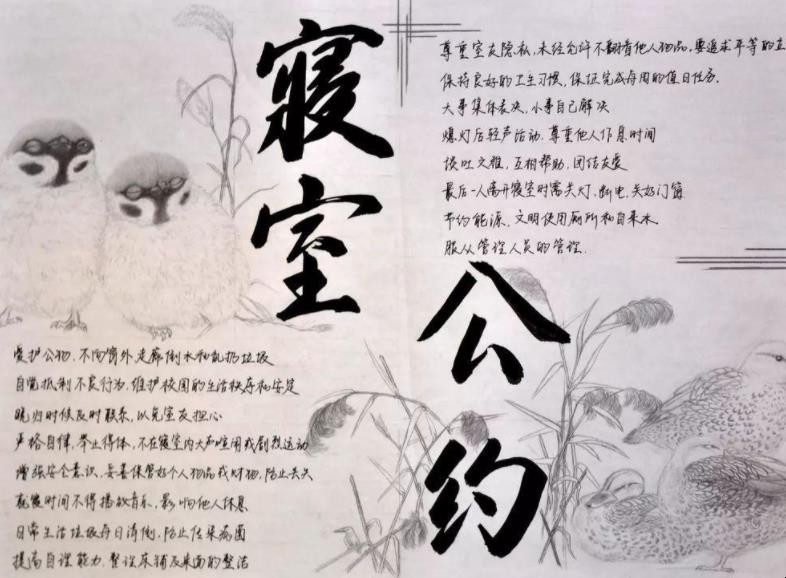 寝室
公约
尊重室友隐私,未经允许不翻看他人物品,要追求平等的
保持良好的卫生习惯,保证完成每周的值日任务.
大事集体表决,小事自己解决
熄灯后轻声活动,尊重他人作息时间
谈吐文雅,互相帮助,团结友爱
最后一人离开寝室时需关灯、断电,关好门窗
节约能源,文明使用厕所和自来水
服从管理人员的管理.
爱护公物,不向窗外走廊倒水和乱扔垃圾
自觉抵制不良行为,维护校园的生活秩序和安定
晚归时候及时联系,以免室友担心
严格自律,举止得体,不在寝室内大声喧闹或剧烈运动
增强安全意识,妥善保管好个人物品或财物,防止丢失
就寝时间不得播放音乐,影响他人休息
日常生活垃圾每日清倒,防止传染病菌
提高自理能力,整理床铺及桌面的整洁